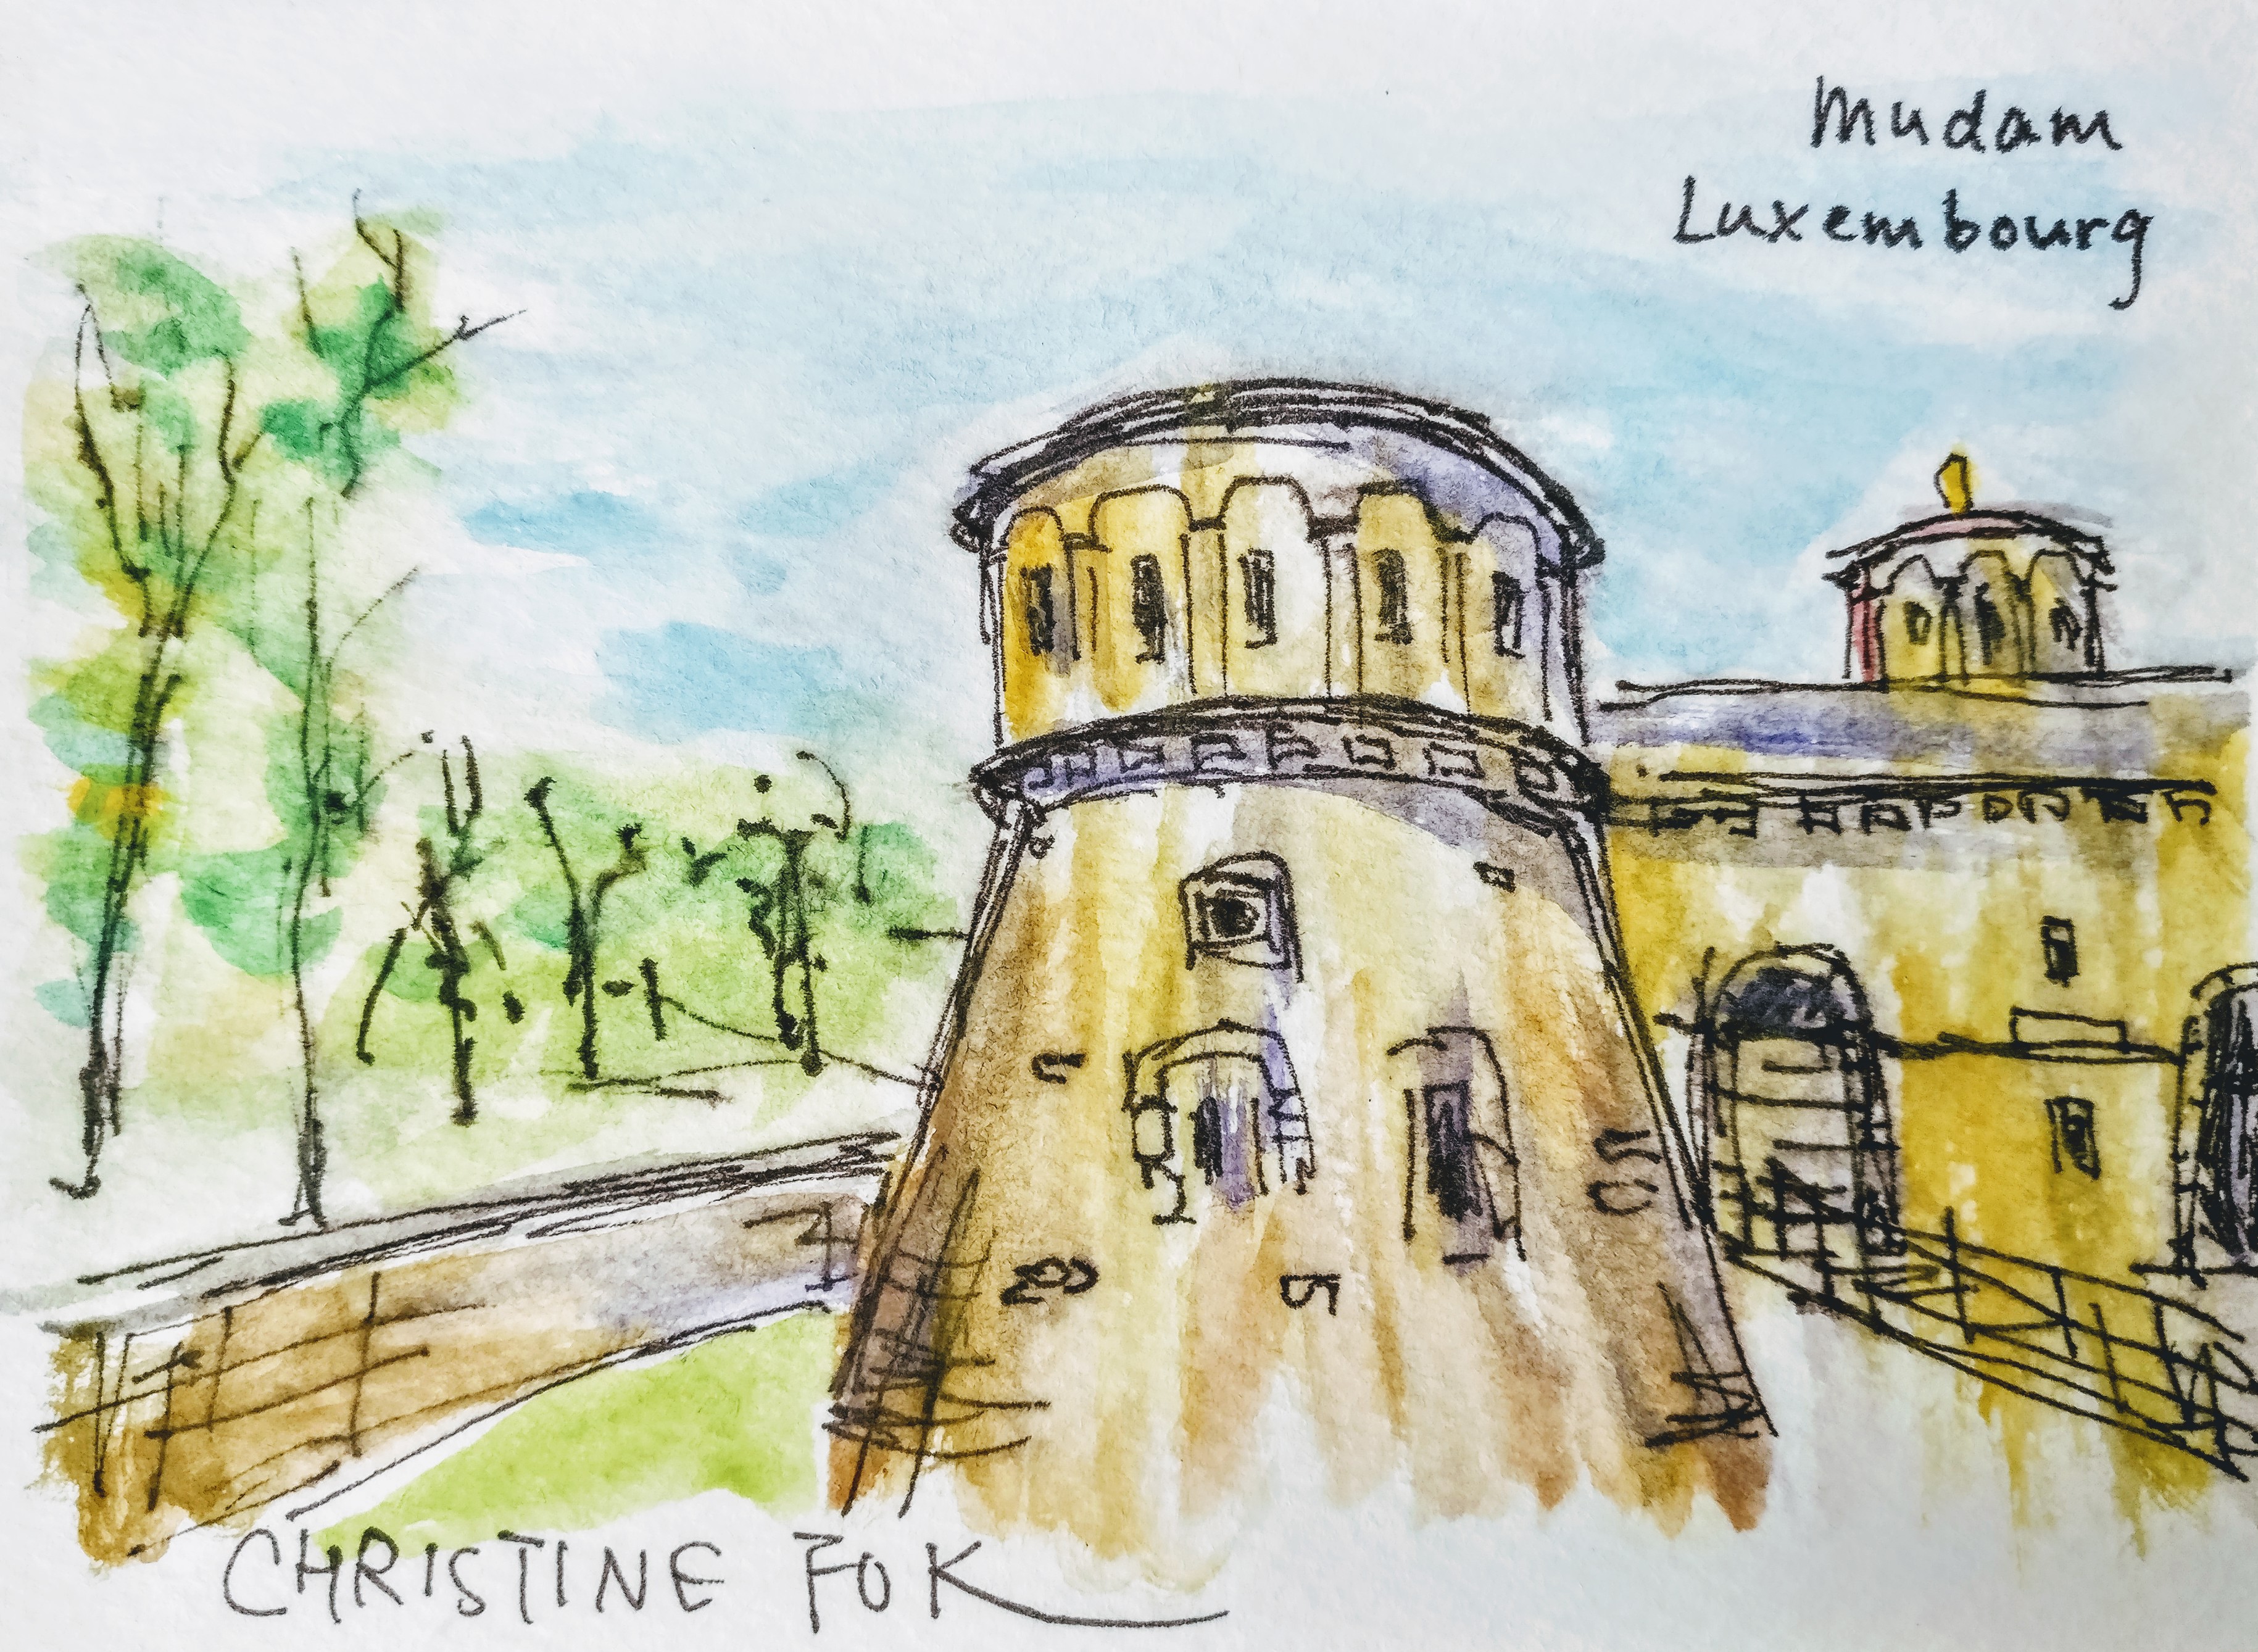 Mudam
Luxembourg
CHRISTINE FOK